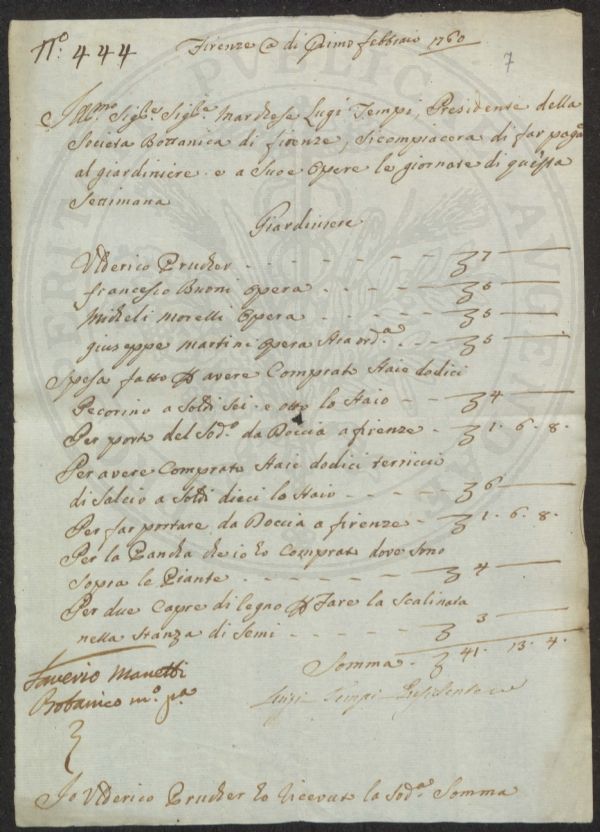 N.º 444
Firenze @ di Primo febbraio 1760
7
Ill.mo Sig.re Sig.re Marchese Luigi Tempi, Presidente della
Societa Bottanica di firenze, si compiacera di far pagar
al giardiniere e a Suoe Opere le giornate di questa
Settimana
Giardiniere
Ulderico Prucker - - - - - - - 7 —
francesco Buoni Opera - - - - 5 —
Micheli Morelli Opera - - - - 5 —
giuseppe Martini Opera Straord.a - - 5 —
Spesa fatto P avere Comprato Staie dodici
Pecorino a Soldi Sei e otto lo Staio - - 4 —
Per porto del Sod.o da Doccia a firenze - 1. 6. 8.
Per avere Comprato Staie dodici terriccio
di Salcio a Soldi dieci lo Staio - - - - 6 —
Per far portare da Doccia a firenze - 1. 6. 8.
Per la Pancha che io ho Comprato dove Sono
Sopra le Piante - - - - - - - 4 —
Per due Capre di legno P Fare la Scalinata
nella Stanza di Semi - - - - - 3 —
Somma - 41. 13. 4.
Saverio Manetti
Botanico m.o p.a
Luigi Tempi Presidente
Io Ulderico Prucker ho ricevuto la Sod.a Somma